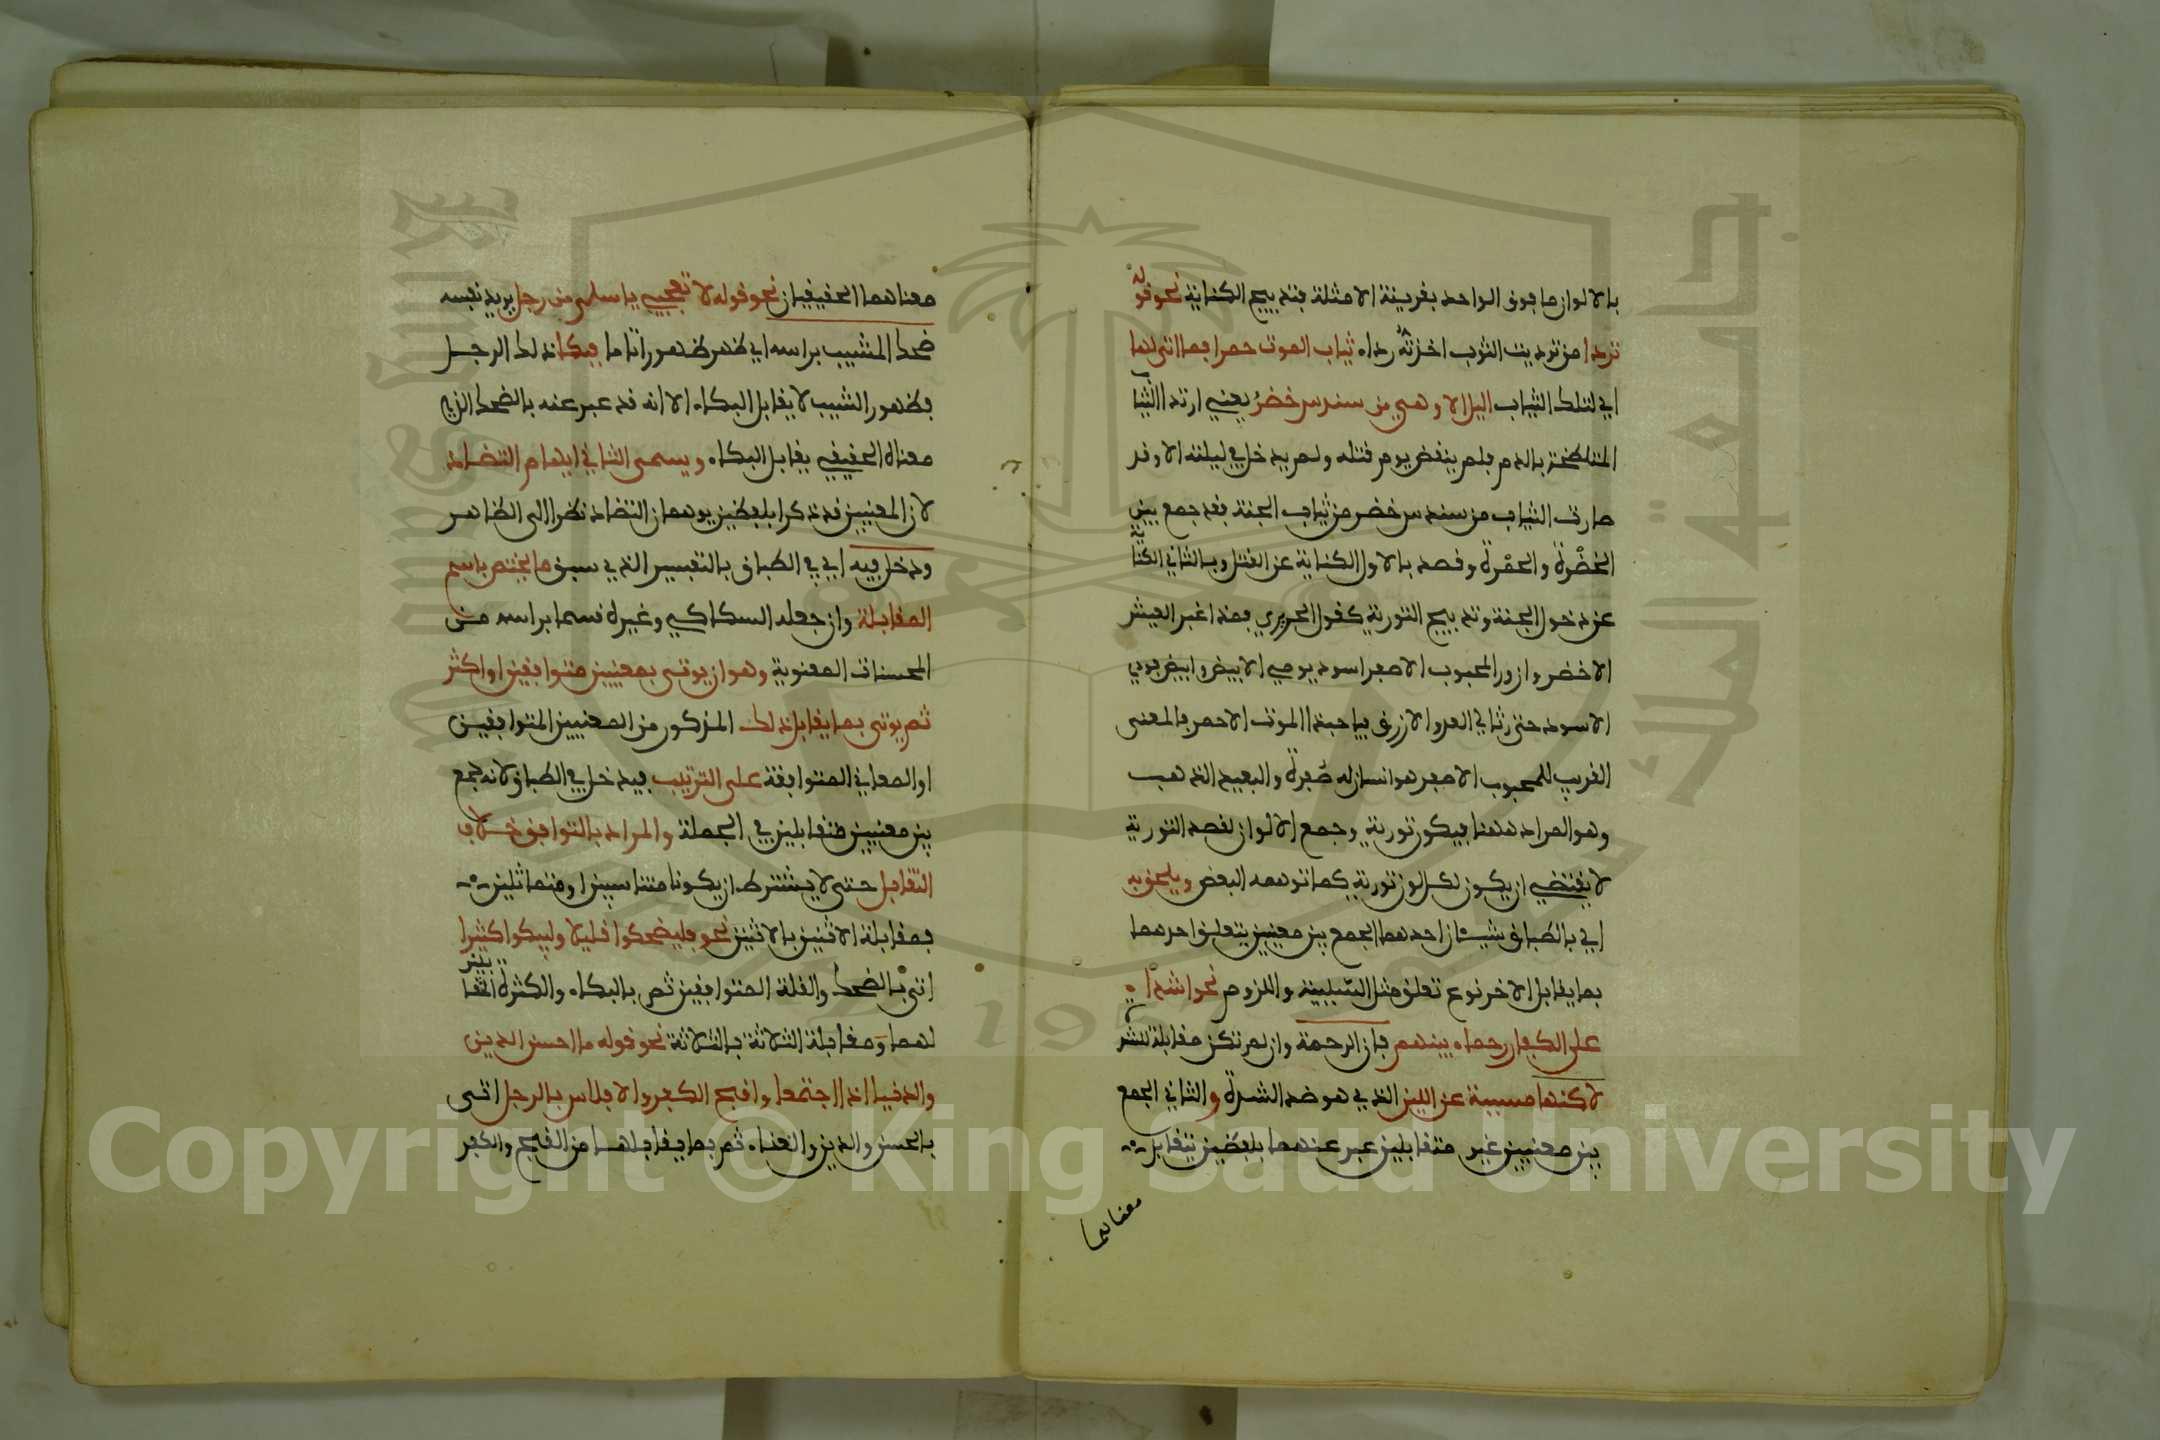 بالالوان ما فوق الواحد بقرينة الامثلة فتدبيج الكناية نحو قوله
تردا من ترديت الثوب اخذته رداء ثياب الموت حمرا فما اتى لها
اي لتلك الثياب اليل الا وهي من سندس خضر يعني ارتدا الثيا
المتلطخة بالدم فلم ينقض يوم قتله ولم يدخل في ليلته الا وقد
صارت الثياب من سندس خضر من ثياب الجنة فقد جمع بين
الخضرة والحمرة وقصد بالاول الكناية عن القتل وبالثاني الكناية
عن دخول الجنة وتدبيج التورية كقول الحريري فمذ اغبر العيش
الاخضر وازور المحبوب الاصفر اسود يومي الابيض وابيض فودي
الاسود حتى رثا لي العدو الازرق فيا حبذا الموت الاحمر فالمعنى
القريب للمحبوب الاصفر هو انسان له صفرة والبعيد الذهب
وهو المراد ههنا فيكون تورية وجمع الالوان لقصد التورية
لا يقتضي ان يكون لكل لون تورية كما توهمه البعض ويلحق به
اي بالطباق شيـان احدهما الجمع بين معنيين يتعلق احدهما
بما يقابل الاخر نوع تعلق مثل السببية واللزوم نحو اشداء
على الكفار رحماء بينهم فان الرحمة وان لم تكن مقابلة للشر
لاكنها مسببة عن اللين الذي هو ضد الشدة والثاني الجمع
بين معنيين غير متقابلين عبر عنهما بلفظين يتقابل
معناهما
معناهما الحقيقيان نحو قوله لا تعجبي يا سلمى من رجل يريد نفسه
ضحك المشيب براسه اي ظهر ظهورا تاما فبكا ذلك الرجـل
فظهور الشيب لا يقابل البكاء الا انه قد عبر عنه بالضحك الذي
معناه الحقيقي يقابل البكاء ويسمى الثاني ايهام التضاد
لان المعنيين قد ذكرا بلفظين يوهمان التضاد نظرا الى الظاهر
ودخل فيه اي في الطباق بالتفسير الذي سبق ما يختص باسم
المقابلة وان جعله السكاكي وغيره قسما براسه من
المحسنات المعنوية وهو ان يوتى بمعنيين متوافقين او اكثر
ثم يوتى بما يقابل ذلك المذكور من المعنيين المتوافقين
او المعاني المتوافقة على الترتيب فيدخل في الطباق لانه جمع
بين معنيين متقابلين في الجملة والمراد بالتوافق خـلاف
التقابل حتى لا يشترط ان يكونا متناسبين او متماثلين
فمقابلة الاثنين بالاثنين نحو فليضحكوا قليلا وليبكوا كثيرا
اتى بالضحك والقلة المتوافقين ثم بالبكاء والكثرة المتقابلين
لهما ومقابلة الثلاثة بالثلاثة نحو قوله ما احسن الدين
والدنيا اذا اجتمعا واقبح الكفر والافلاس بالرجل اتـى
بالحسن والدين والغناء ثم بما يقابلهـا من القبح والكفر
Copyright © King Saud University
جامعة الملك سعود
1957